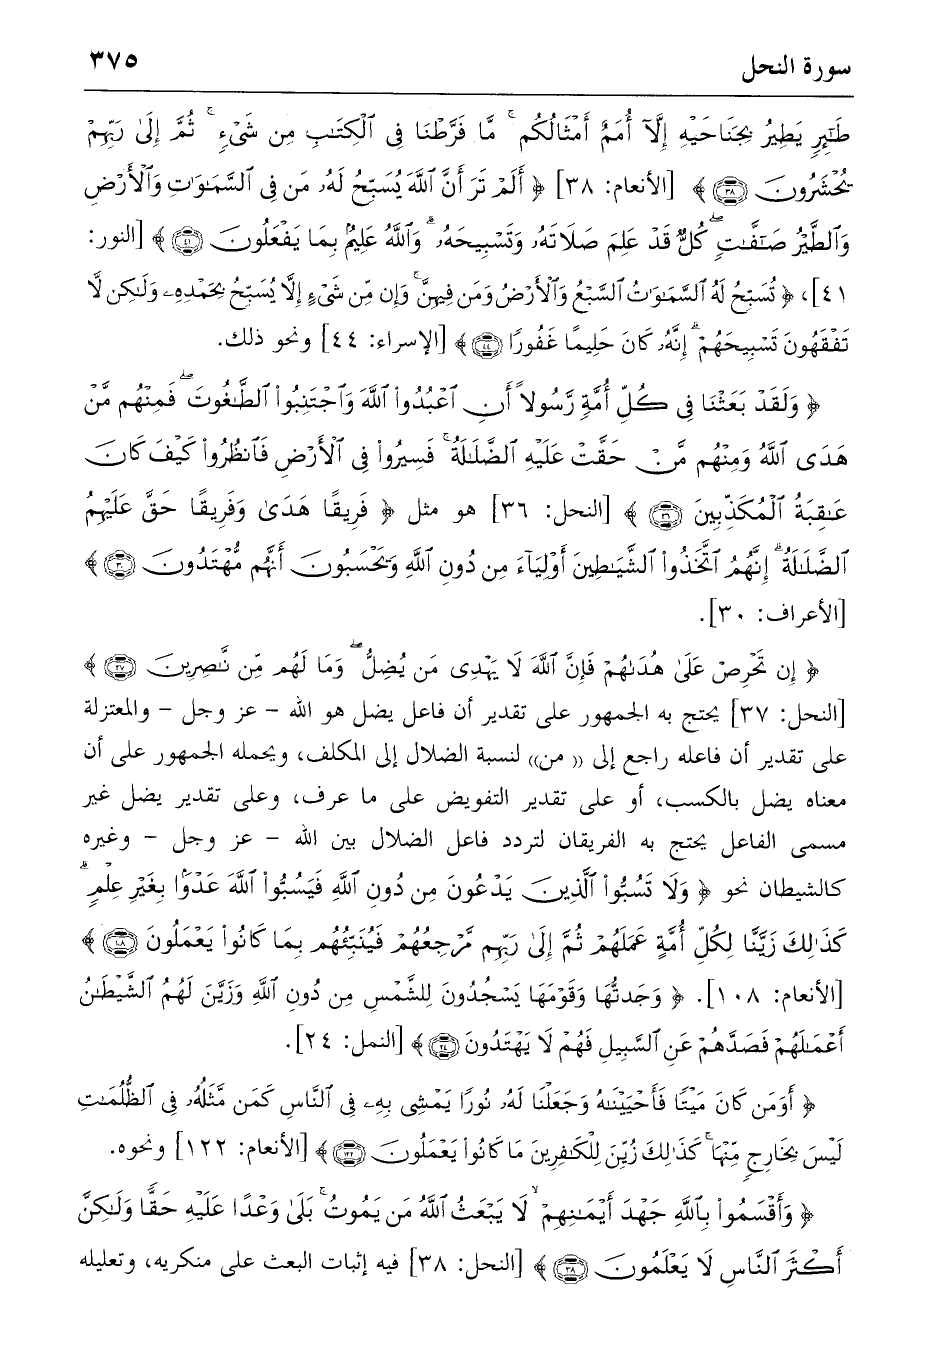 سورة النحل ٣٧٥
طَٰٓئِرٍ يَطِيرُ بِجَنَاحَيْهِ إِلَّآ أُمَمٌ أَمْثَالُكُم ۚ مَّا فَرَّطْنَا فِى ٱلْكِتَٰبِ مِن شَىْءٍ ۚ ثُمَّ إِلَىٰ رَبِّهِمْ
يُحْشَرُونَ ٣٨ ﴾ [الأنعام: ٣٨] ﴿ أَلَمْ تَرَ أَنَّ ٱللَّهَ يُسَبِّحُ لَهُۥ مَن فِى ٱلسَّمَٰوَٰتِ وَٱلْأَرْضِ
وَٱلطَّيْرُ صَٰٓفَّٰتٍ ۖ كُلٌّ قَدْ عَلِمَ صَلَاتَهُۥ وَتَسْبِيحَهُۥ ۗ وَٱللَّهُ عَلِيمٌۢ بِمَا يَفْعَلُونَ ٤١ ﴾ [النور:
٤١]، ﴿ تُسَبِّحُ لَهُ ٱلسَّمَٰوَٰتُ ٱلسَّبْعُ وَٱلْأَرْضُ وَمَن فِيهِنَّ ۚ وَإِن مِّن شَىْءٍ إِلَّا يُسَبِّحُ بِحَمْدِهِۦ وَلَٰكِن لَّا
تَفْقَهُونَ تَسْبِيحَهُمْ ۗ إِنَّهُۥ كَانَ حَلِيمًا غَفُورًا ٤٤ ﴾ [الإسراء: ٤٤] ونحو ذلك.
﴿ وَلَقَدْ بَعَثْنَا فِى كُلِّ أُمَّةٍ رَّسُولًا أَنِ ٱعْبُدُوا۟ ٱللَّهَ وَٱجْتَنِبُوا۟ ٱلطَّٰغُوتَ ۖ فَمِنْهُم مَّنْ
هَدَى ٱللَّهُ وَمِنْهُم مَّنْ حَقَّتْ عَلَيْهِ ٱلضَّلَٰلَةُ ۚ فَسِيرُوا۟ فِى ٱلْأَرْضِ فَٱنظُرُوا۟ كَيْفَ كَانَ
عَٰقِبَةُ ٱلْمُكَذِّبِينَ ٣٦ ﴾ [النحل: ٣٦] هو مثل ﴿ فَرِيقًا هَدَىٰ وَفَرِيقًا حَقَّ عَلَيْهِمُ
ٱلضَّلَٰلَةُ ۗ إِنَّهُمُ ٱتَّخَذُوا۟ ٱلشَّيَٰطِينَ أَوْلِيَآءَ مِن دُونِ ٱللَّهِ وَيَحْسَبُونَ أَنَّهُم مُّهْتَدُونَ ٣٠ ﴾
[الأعراف: ٣٠].
﴿ إِن تَحْرِصْ عَلَىٰ هُدَىٰهُمْ فَإِنَّ ٱللَّهَ لَا يَهْدِى مَن يُضِلُّ ۖ وَمَا لَهُم مِّن نَّٰصِرِينَ ٣٧ ﴾
[النحل: ٣٧] يحتج به الجمهور على تقدير أن فاعل يضل هو الله - عز وجل - والمعتزلة
على تقدير أن فاعله راجع إلى (( من)) لنسبة الضلال إلى المكلف، ويحمله الجمهور على أن
معناه يضل بالكسب، أو على تقدير التفويض على ما عرف، وعلى تقدير يضل غير
مسمى الفاعل يحتج به الفريقان لتردد فاعل الضلال بين الله - عز وجل - وغيره
كالشيطان نحو ﴿ وَلَا تَسُبُّوا۟ ٱلَّذِينَ يَدْعُونَ مِن دُونِ ٱللَّهِ فَيَسُبُّوا۟ ٱللَّهَ عَدْوًۢا بِغَيْرِ عِلْمٍ ۗ
كَذَٰلِكَ زَيَّنَّا لِكُلِّ أُمَّةٍ عَمَلَهُمْ ثُمَّ إِلَىٰ رَبِّهِم مَّرْجِعُهُمْ فَيُنَبِّئُهُم بِمَا كَانُوا۟ يَعْمَلُونَ ١٠٨ ﴾
[الأنعام: ١٠٨]. ﴿ وَجَدتُّهَا وَقَوْمَهَا يَسْجُدُونَ لِلشَّمْسِ مِن دُونِ ٱللَّهِ وَزَيَّنَ لَهُمُ ٱلشَّيْطَٰنُ
أَعْمَٰلَهُمْ فَصَدَّهُمْ عَنِ ٱلسَّبِيلِ فَهُمْ لَا يَهْتَدُونَ ٢٤ ﴾ [النمل: ٢٤].
﴿ أَوَمَن كَانَ مَيْتًا فَأَحْيَيْنَٰهُ وَجَعَلْنَا لَهُۥ نُورًا يَمْشِى بِهِۦ فِى ٱلنَّاسِ كَمَن مَّثَلُهُۥ فِى ٱلظُّلُمَٰتِ
لَيْسَ بِخَارِجٍ مِّنْهَا ۚ كَذَٰلِكَ زُيِّنَ لِلْكَٰفِرِينَ مَا كَانُوا۟ يَعْمَلُونَ ١٢٢ ﴾ [الأنعام: ١٢٢] ونحوه.
﴿ وَأَقْسَمُوا۟ بِٱللَّهِ جَهْدَ أَيْمَٰنِهِمْ ۙ لَا يَبْعَثُ ٱللَّهُ مَن يَمُوتُ ۚ بَلَىٰ وَعْدًا عَلَيْهِ حَقًّا وَلَٰكِنَّ
أَكْثَرَ ٱلنَّاسِ لَا يَعْلَمُونَ ٣٨ ﴾ [النحل: ٣٨] فيه إثبات البعث على منكريه، وتعليله